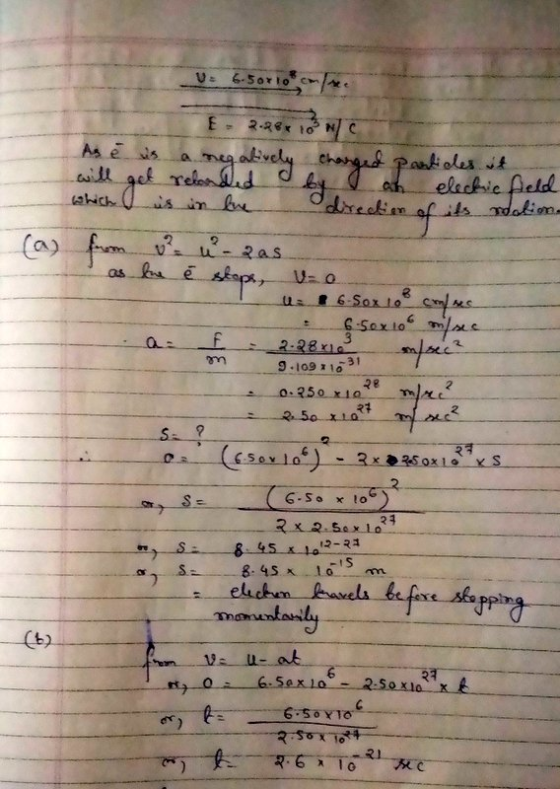 V = 6.50x10⁸ cm/sec
E = 2.28x10³ N/C
As ē is a negatively charged particles it
will get retarded by an electric field
which is in the direction of its motion.
(a) from v² = u² - 2as
as the ē stops, V=0
u = 6.50x10⁸ cm/sec
= 6.50x10⁶ m/sec
a = F/m = 2.28x10³/9.109x10⁻³¹ m/sec²
= 0.250 x10²⁸ m/sec²
= 2.50 x10²⁷ m/sec²
S = ?
∴ 0 = (6.50x10⁶)² - 2x 2.50x10²⁷ x S
or, S = (6.50 x 10⁶)²/2 x 2.50x10²⁷
or, S = 8.45 x 10¹²⁻²⁷
or, S = 8.45 x 10⁻¹⁵ m
= electron travels before stopping
momentarily
(b)
from v = u - at
or, 0 = 6.50x10⁶ - 2.50x10²⁷ x t
or, t = 6.50x10⁶/2.50x10²⁷
or, t = 2.6 x 10⁻²¹ sec